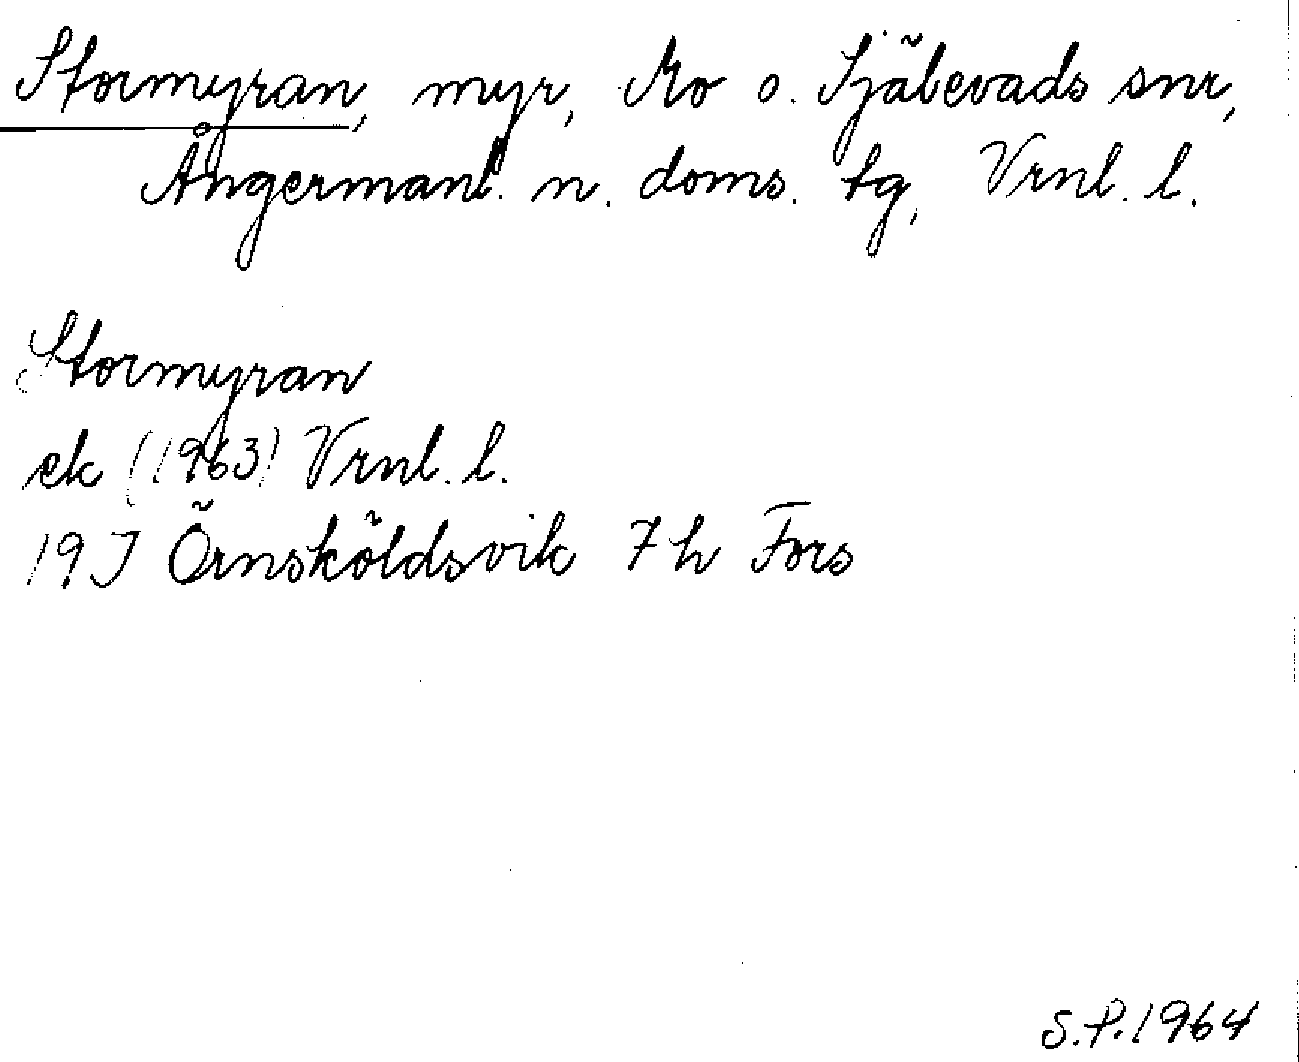 Stormyran, myr, Mo o. Själevads snr,
Ångermanl. n. doms. tg, Vrnl. l.
Stormyran
ek (1963) Vrnl. l.
19J Örnsköldsvik 7h Fors
S.P. 1964